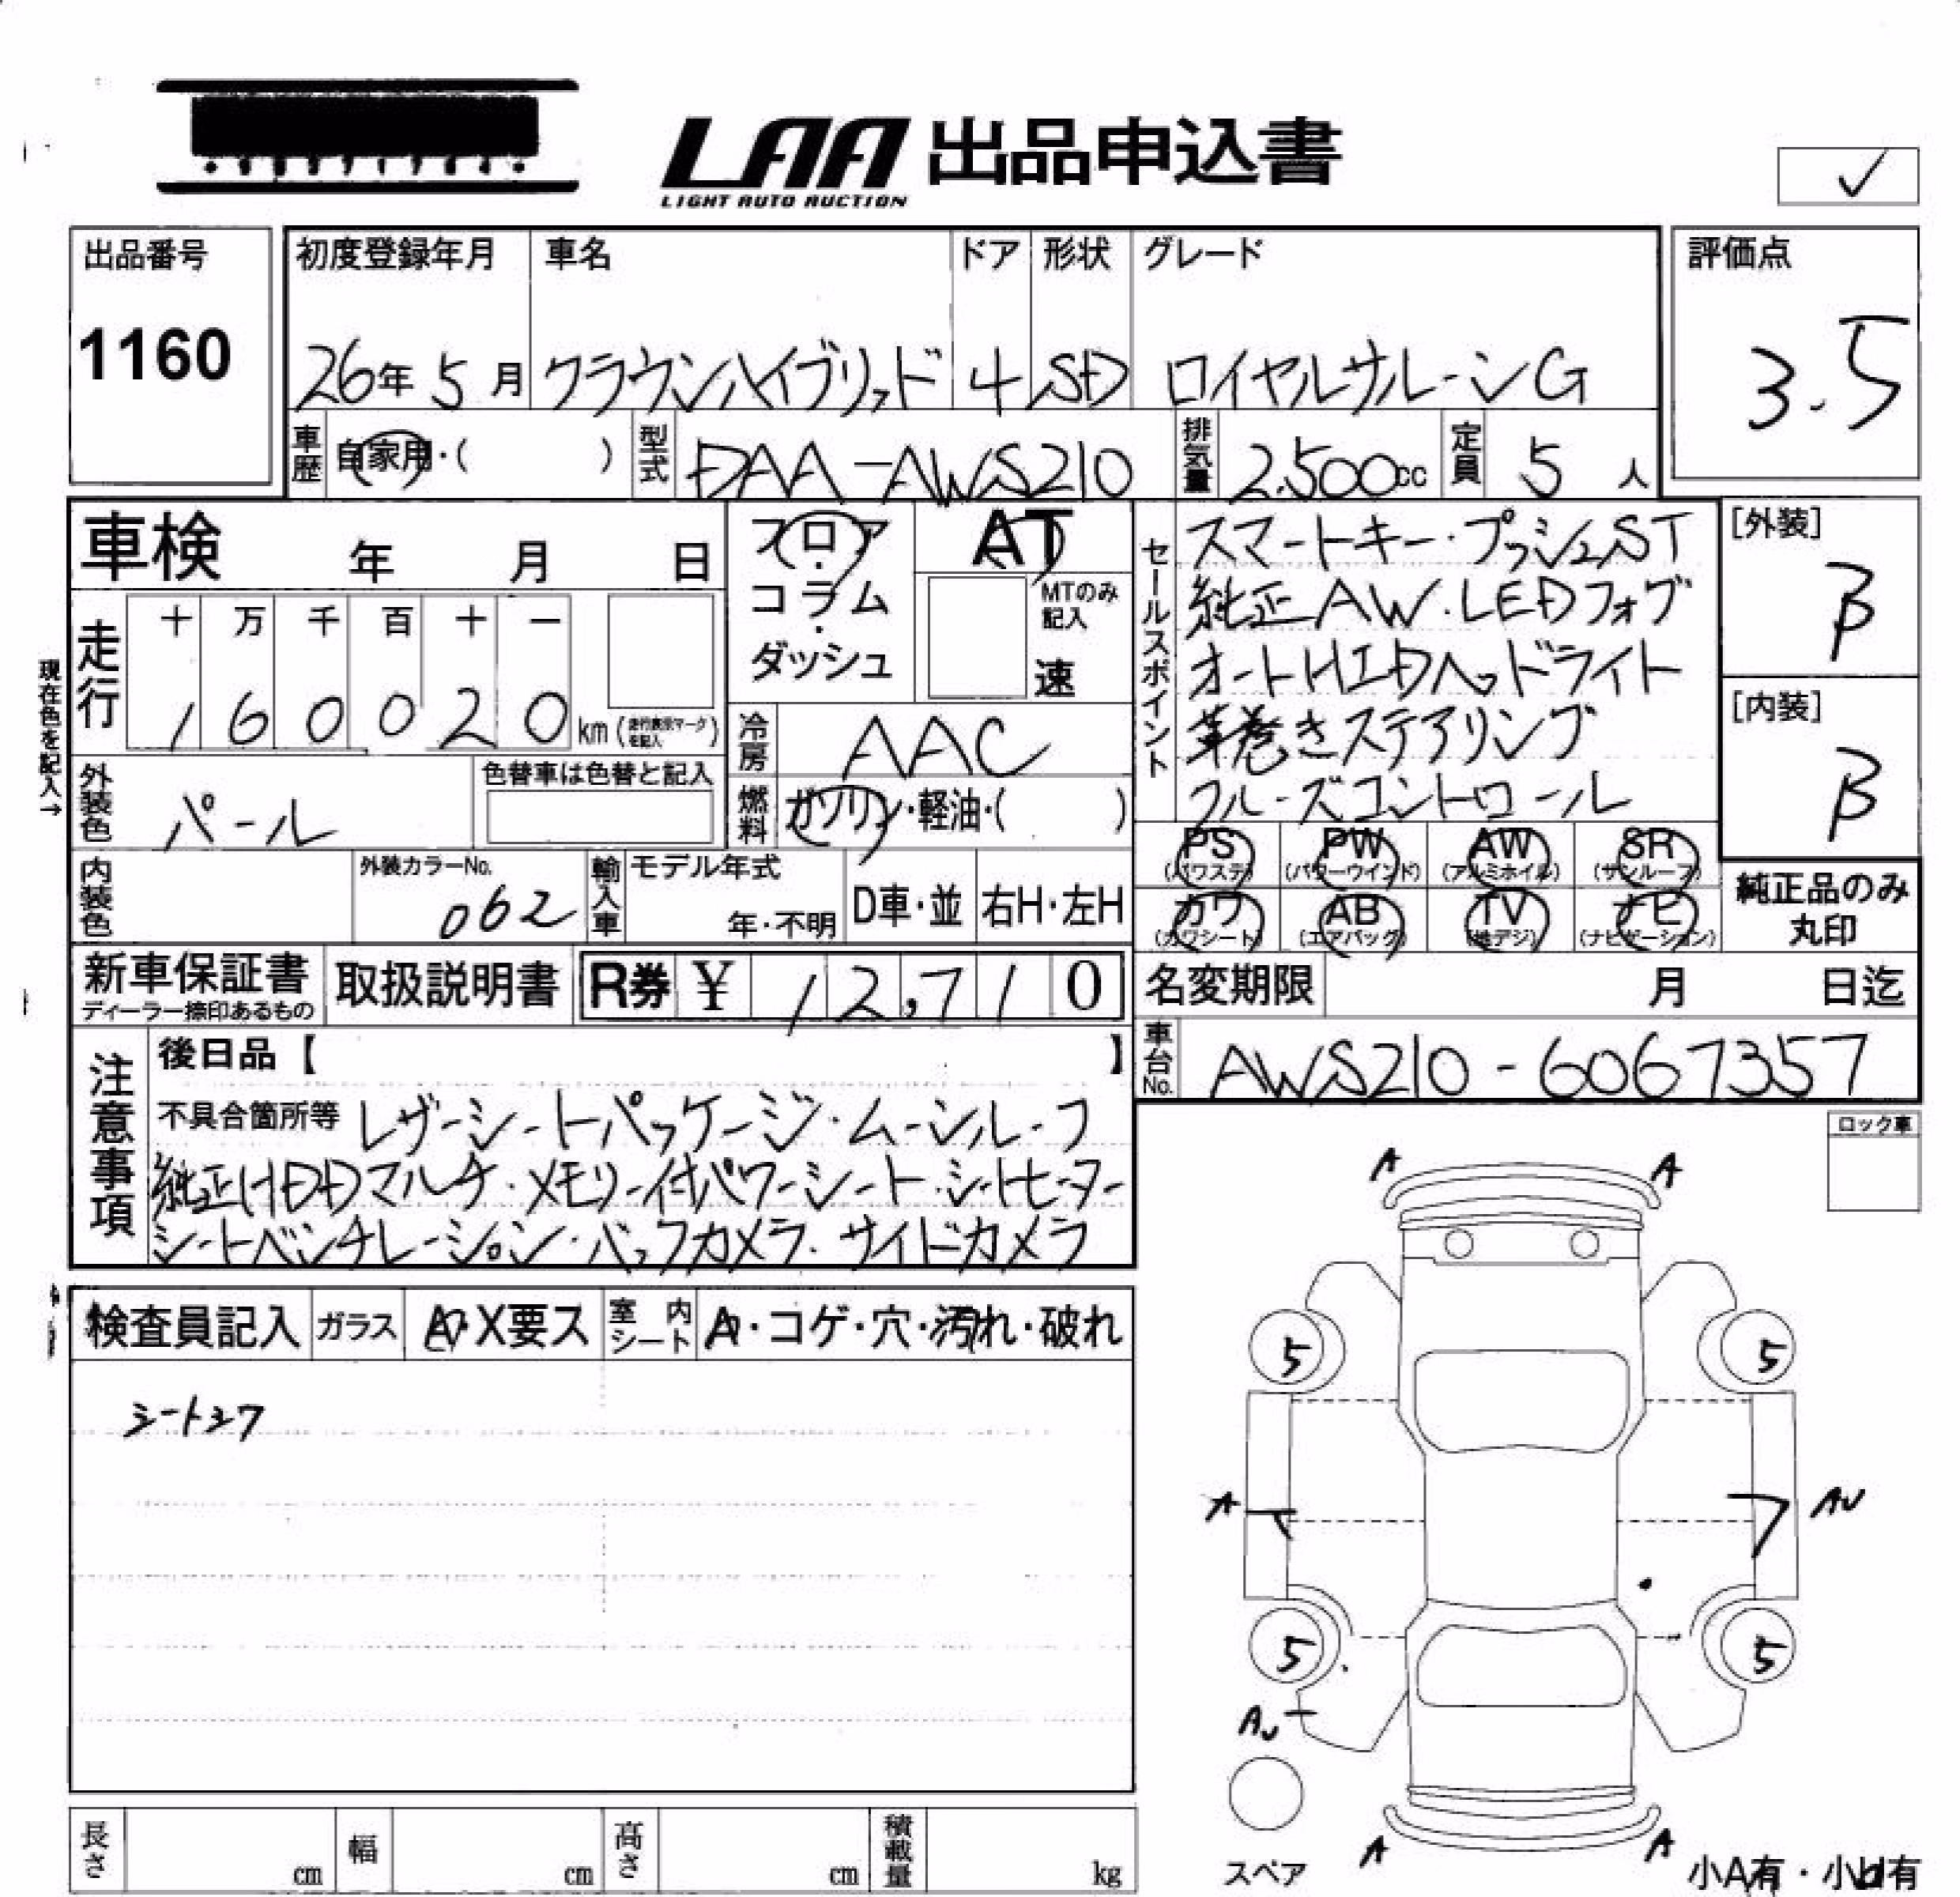 LAA 出品申込書
LIGHT AUTO AUCTION
出品番号
1160
初度登録年月 車名 ドア 形状 グレード
26年 5月 クラウンハイブリッド 4 SD ロイヤルサルーンG
評価点
3.5
車歴 自家用・( ) 型式 DAA-AWS210 排気量 2,500cc 定員 5人
車検 年 月 日
フロア・コラム・ダッシュ
AT
MTのみ記入
速
セールスポイント
スマートキー・プッシュST
純正AW・LEDフォグ
オートHIDヘッドライト
革巻きステアリング
クルーズコントロール
[外装]
B
[内装]
B
現在色を記入→
走行 十 万 千 百 十 一
1 6 0 0 2 0 km (走行表示マークを記入)
冷房 AAC
外装色 パール 色替車は色替と記入
燃料 ガソリン・軽油・( )
内装色 外装カラーNo. 062 輸入車 モデル年式 年・不明 D車・並 右H・左H
PS (パワステ) PW (パワーウインド) AW (アルミホイル) SR (サンルーフ)
カワ (カワシート) AB (エアバッグ) TV (地デジ) ナビ (ナビゲーション)
純正品のみ丸印
新車保証書 ディーラー捺印あるもの 取扱説明書 R券 ¥ 12,710
名変期限 月 日迄
車台No. AWS210-6067357
注意事項
後日品【 】
不具合箇所等 レザーシートパッケージ・ムーンルーフ
純正HDDマルチ・メモリー付パワーシート・シートヒーター
シートベンチレーション・バックカメラ・サイドカメラ
ロック車
検査員記入 ガラス A・X要ス 室内シート A・コゲ・穴・汚れ・破れ
シートシワ
A A
5 5
A AU
5 5
AU
スペア
A A
小A有・小U有
長さ cm 幅 cm 高さ cm 積載量 kg